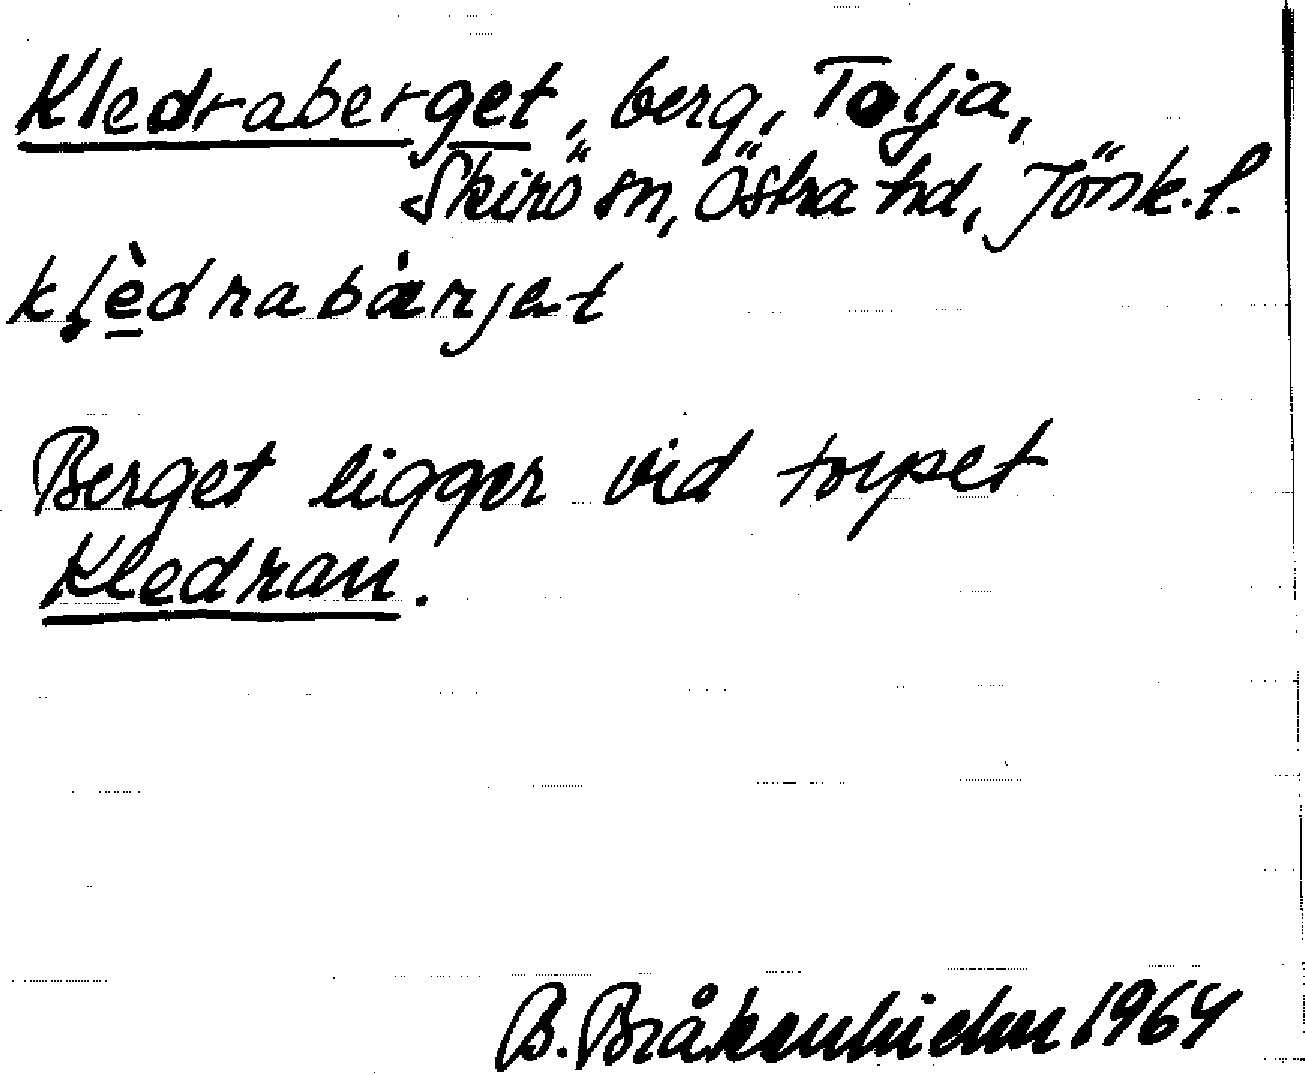 Kledraberget, berg, Tolja,
Skirö sn, Östra hd, Jönk. l.
klèdrabàrjat
Berget ligger vid torpet
Kledran.
B. Bråkenhielm 1964